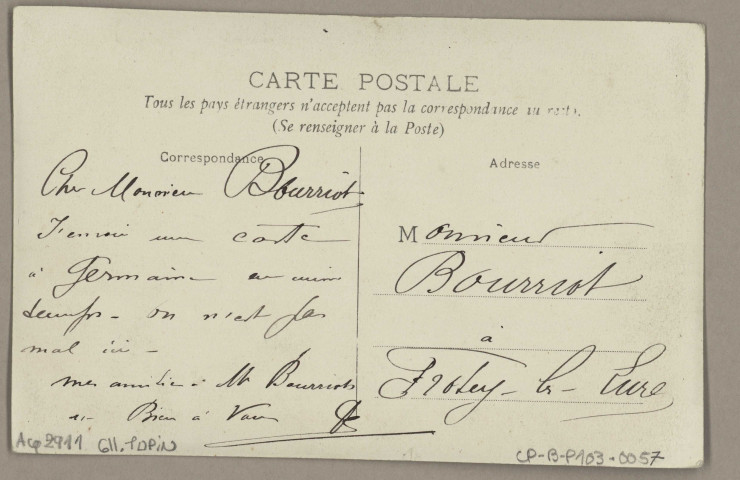 CARTE POSTALE
Tous les pays étrangers n'acceptent pas la correspondance au recto.
(Se renseigner à la Poste)
Correspondance
Cher Monsieur Bourriot
J'envoie une carte
à Germaine en même
temps - on n'est pas
mal ici -
mes amitiés à Me Bourriot
Bien à Vous
Adresse
Monsieur
Bourriot
à
Frotey-les-Lure
Acq 2911 Gll. TOPIN
CP-B-P103-0057